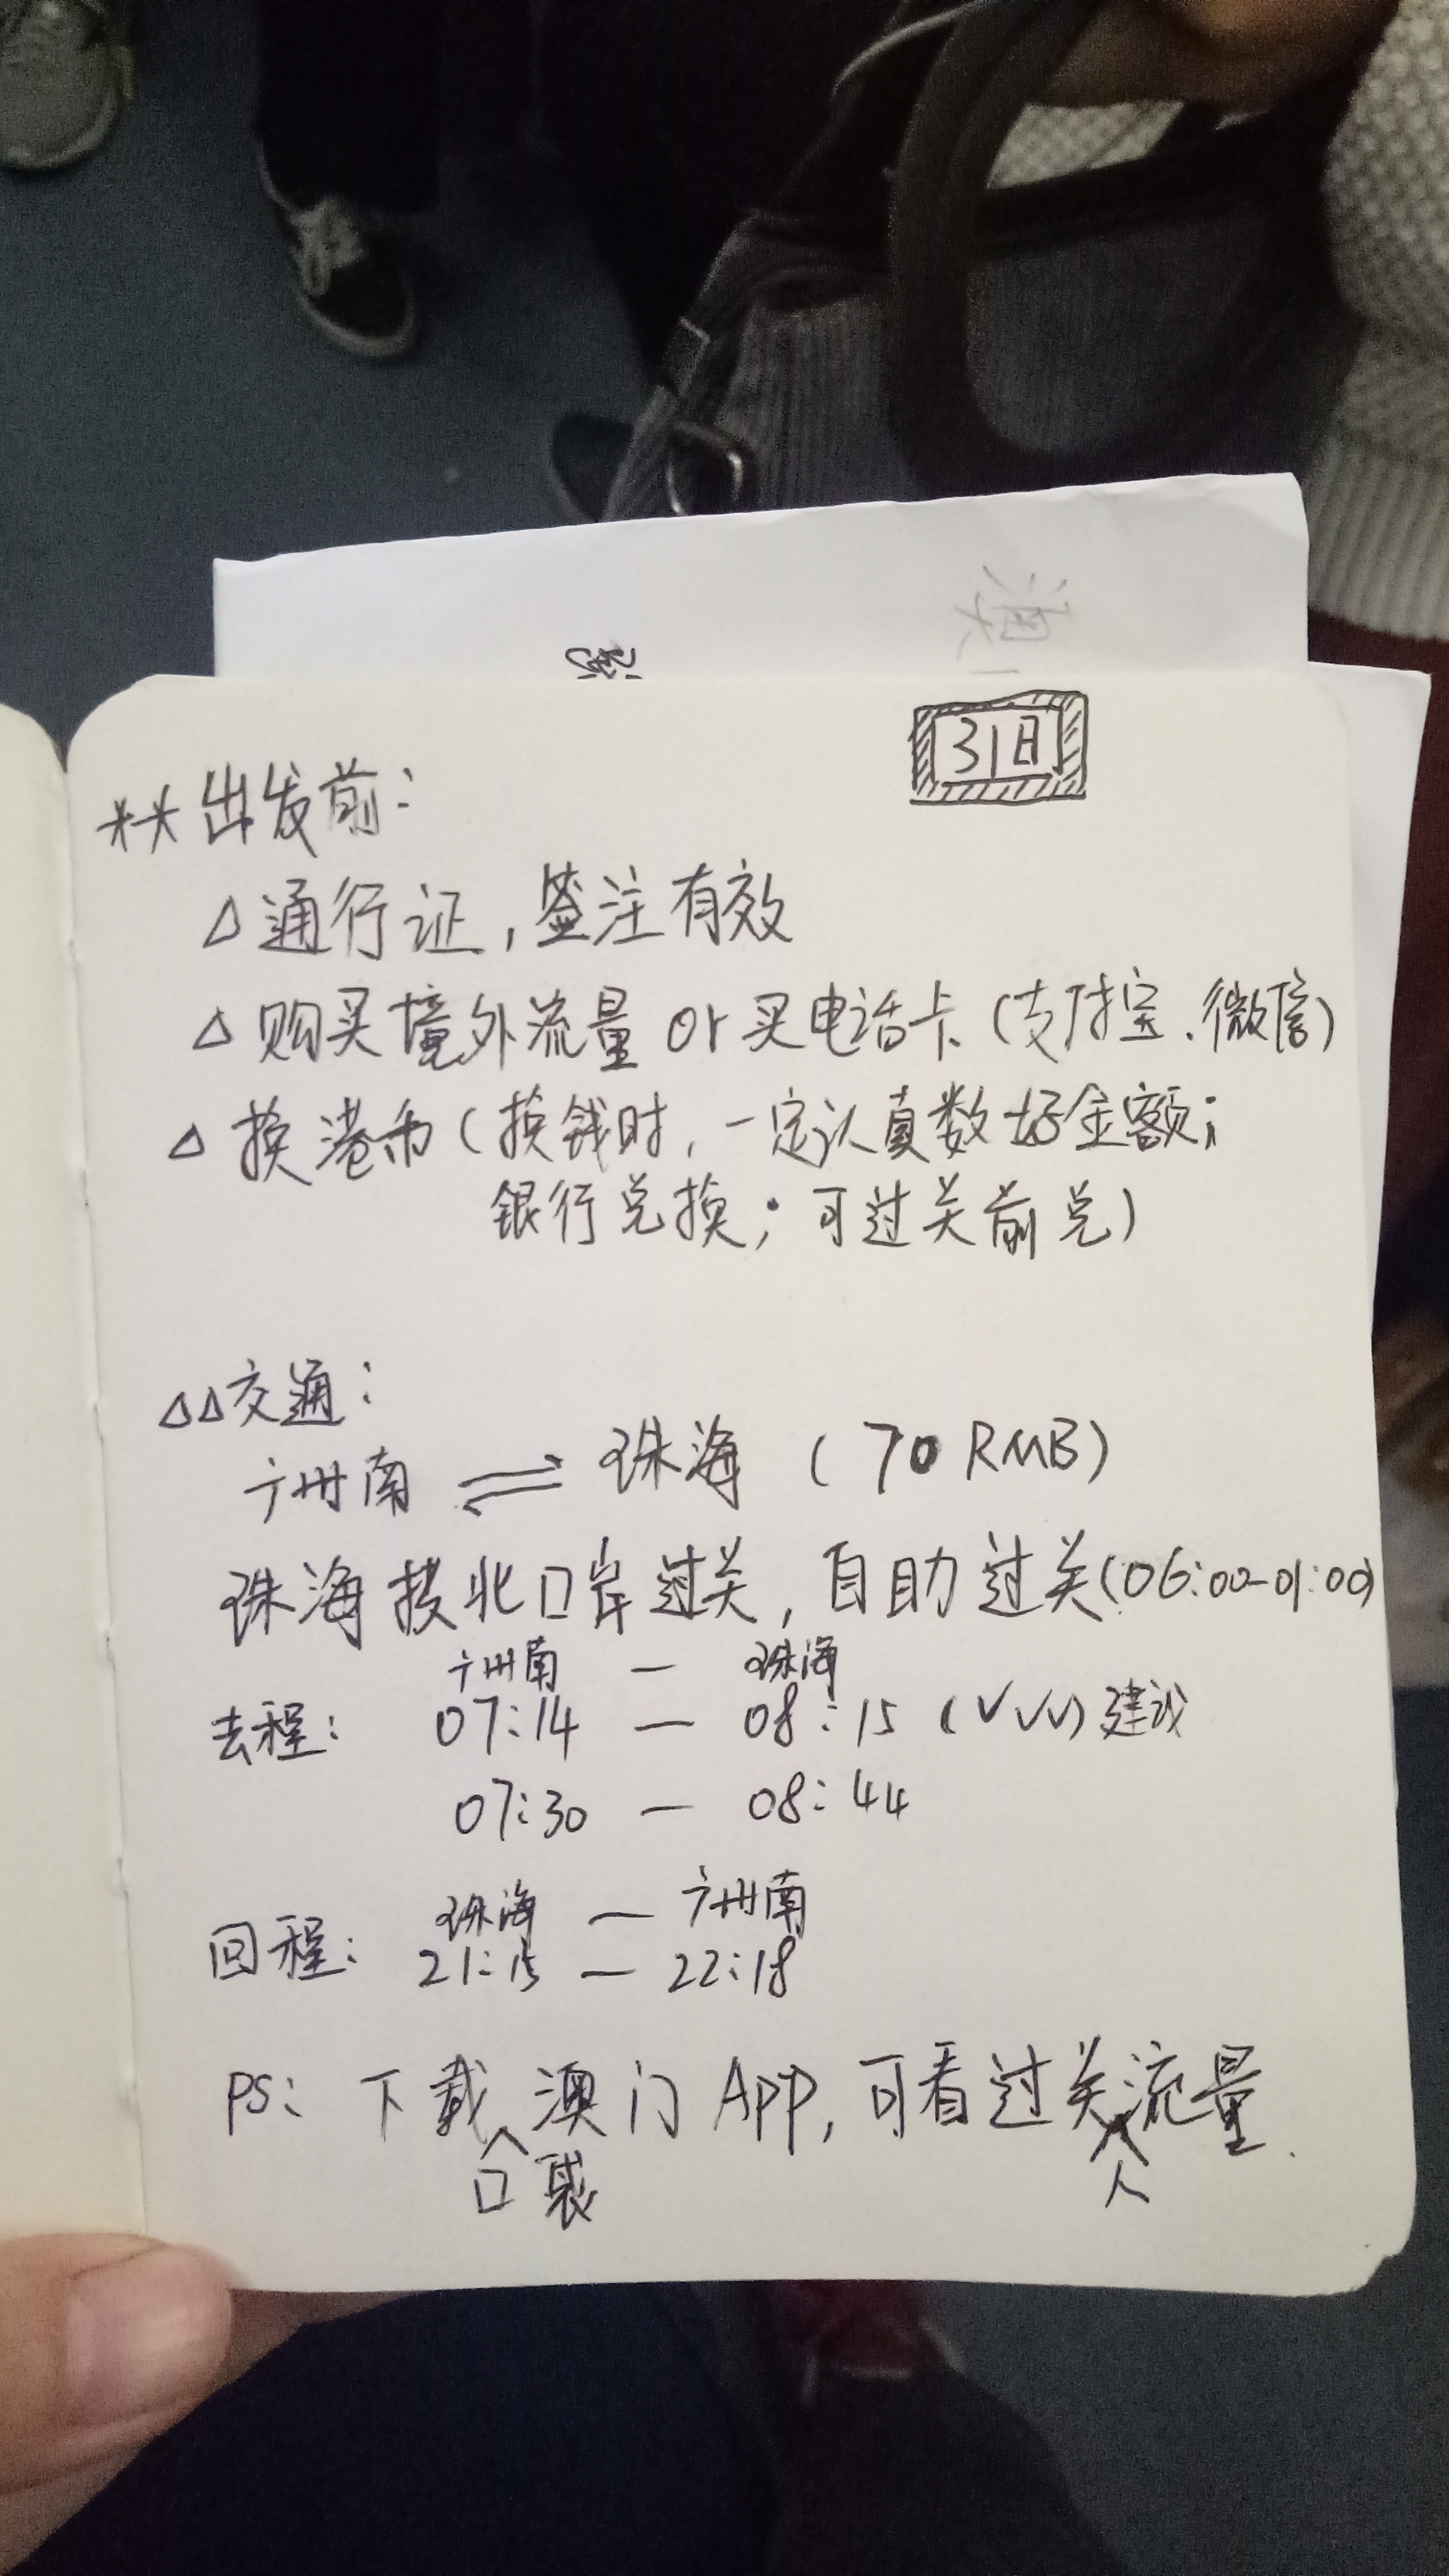 31日
**出发前:
△通行证,签注有效
△购买境外流量 or 买电话卡(支付宝、微信)
△换港币(换钱时,一定认真数好金额;
银行兑换;可过关前兑)
△△交通:
广州南 ⇌ 珠海 (70 RMB)
珠海拱北口岸过关,自助过关(06:00-01:00)
广州南 — 珠海
去程: 07:14 — 08:15 (√√√)建议
07:30 — 08:44
珠海 — 广州南
回程: 21:15 — 22:18
PS: 下载口袋澳门App,可看过关人流量.